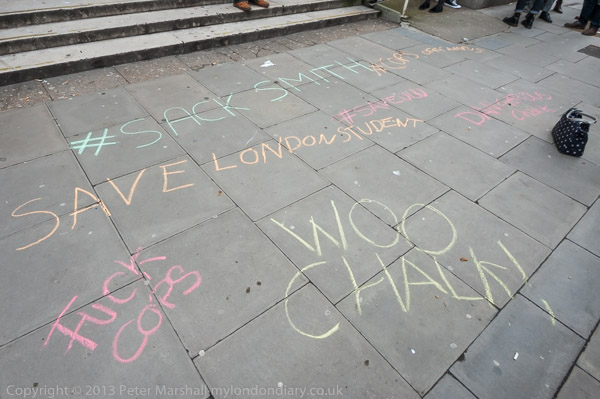 #SACK SMITH
SAVE LONDON STUDENT
WOO
CHALK!
FUCK
COPS
Copyright © 2013 Peter Marshall mylondondiary.co.uk